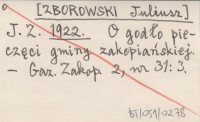 [ZBOROWSKI Juliusz]
J. Z. 1922. O godło pie-
częci gminy zakopiańskiej.
- Gaz. Zakop 2, nr 31: 3.